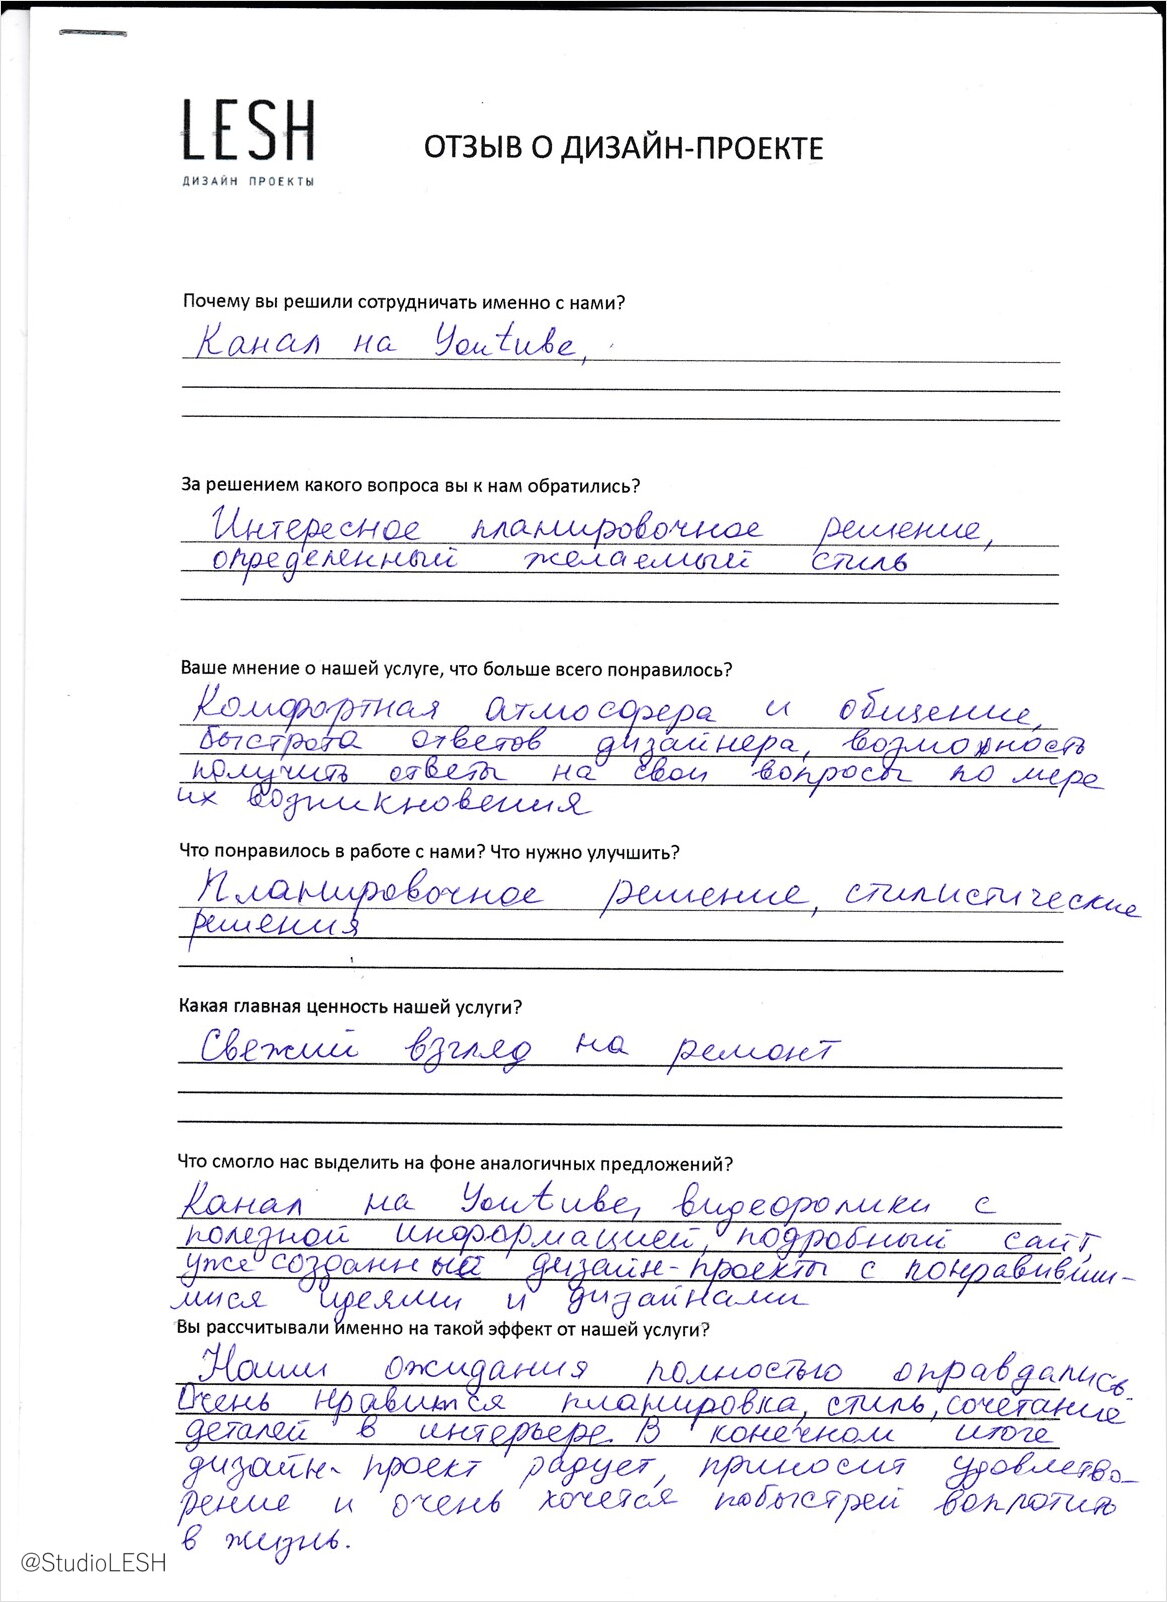 LESH
ДИЗАЙН ПРОЕКТЫ
ОТЗЫВ О ДИЗАЙН-ПРОЕКТЕ
Почему вы решили сотрудничать именно с нами?
Канал на Youtube,
За решением какого вопроса вы к нам обратились?
Интересное планировочное решение,
определенный желаемый стиль
Ваше мнение о нашей услуге, что больше всего понравилось?
Комфортная атмосфера и общение,
быстрота ответов дизайнера, возможность
получить ответы на свои вопросы по мере
их возникновения
Что понравилось в работе с нами? Что нужно улучшить?
Планировочное решение, стилистические
решения
Какая главная ценность нашей услуги?
Свежий взгляд на ремонт
Что смогло нас выделить на фоне аналогичных предложений?
Канал на Youtube, видеоролики с
полезной информацией, подробный сайт,
уже созданные дизайн-проекты с понравивши-
мися идеями и дизайнами
Вы рассчитывали именно на такой эффект от нашей услуги?
Наши ожидания полностью оправдались.
Очень нравится планировка, стиль, сочетание
деталей в интерьере. В конечном итоге
дизайн-проект радует, приносит удовлетво-
рение и очень хочется побыстрей воплотить
в жизнь.
@StudioLESH